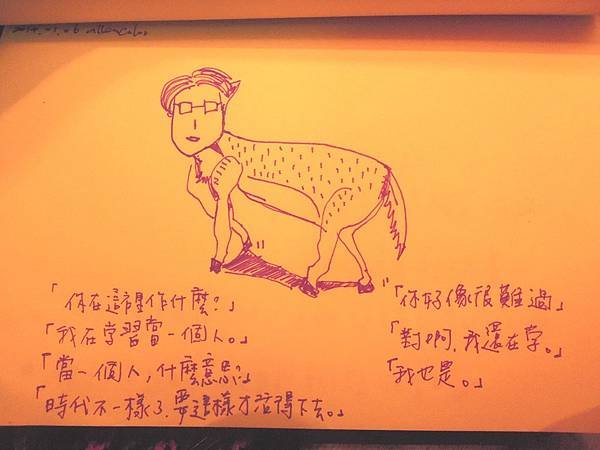 「你在這裡作什麼?」
「我在学習當一個人。」
「當一個人,什麼意思?」
「時代不一樣了,要這樣才活得下去。」
「你好像很難過」
「對啊,我還在学。」
「我也是。」